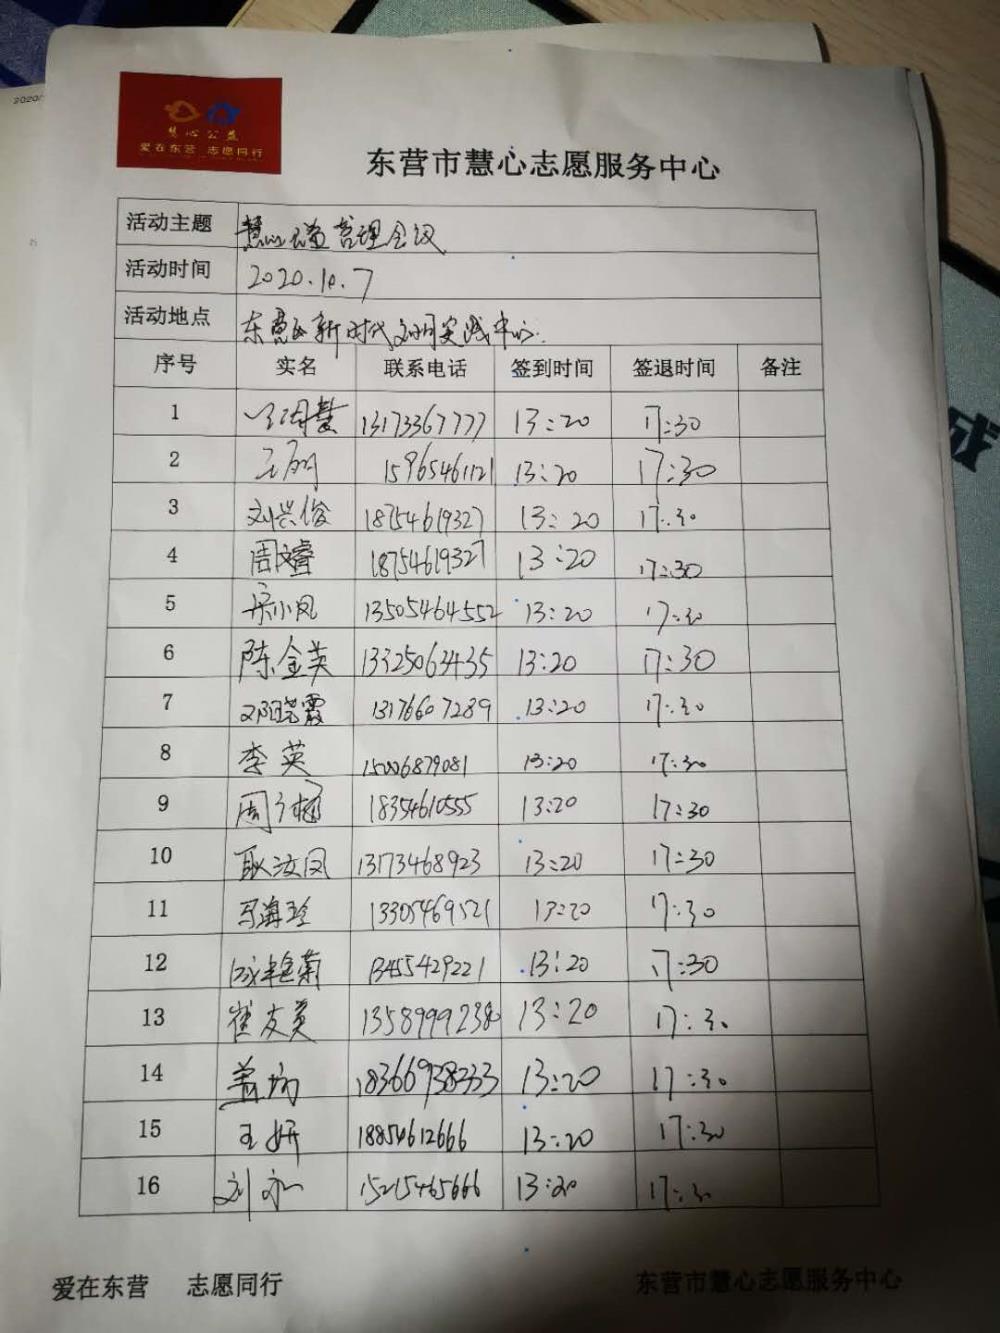 2020
慧心公益
爱在东营 志愿同行
东营市慧心志愿服务中心
活动主题 慧心公益管理会议
活动时间 2020.10.7
活动地点 东营区新时代文明实践中心.
序号 实名 联系电话 签到时间 签退时间 备注
1 慧 13173367777 13:20 17:30
2 王 15965461121 13:20 17:30
3 刘兴俊 18754619327 13:20 17:30
4 周睿 18754619327 13:20 17:30
5 小凤 13505464552 13:20 17:30
6 陈金英 13325063435 13:20 17:30
7 邓晓霞 13176607289 13:20 17:30
8 李英 15006879081 13:20 17:30
9 周 18354610555 13:20 17:30
10 耿汝凤 13173468923 13:20 17:30
11 马海玲 13305469521 13:20 17:30
12 菊 13455429221 13:20 17:30
13 崔友英 13589999238 13:20 17:30
14 18366938333 13:20 17:30
15 王妍 18854612666 13:20 17:30
16 刘 15215465666 13:20 17:30
爱在东营 志愿同行 东营市慧心志愿服务中心
成